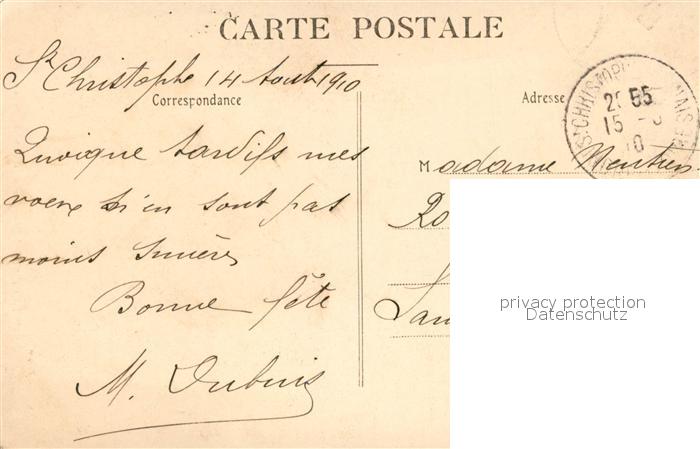 CARTE POSTALE
St Christophe 14 Aout 1910
Correspondance
Adresse
St CHRISTOPH
NAIS
2 55
15 -8
10
Quoique tardifs mes
voeux n'en sont pas
moins sincères
Bonne fête
M. Dubuis
Madame
Ro
San
privacy protection
Datenschutz